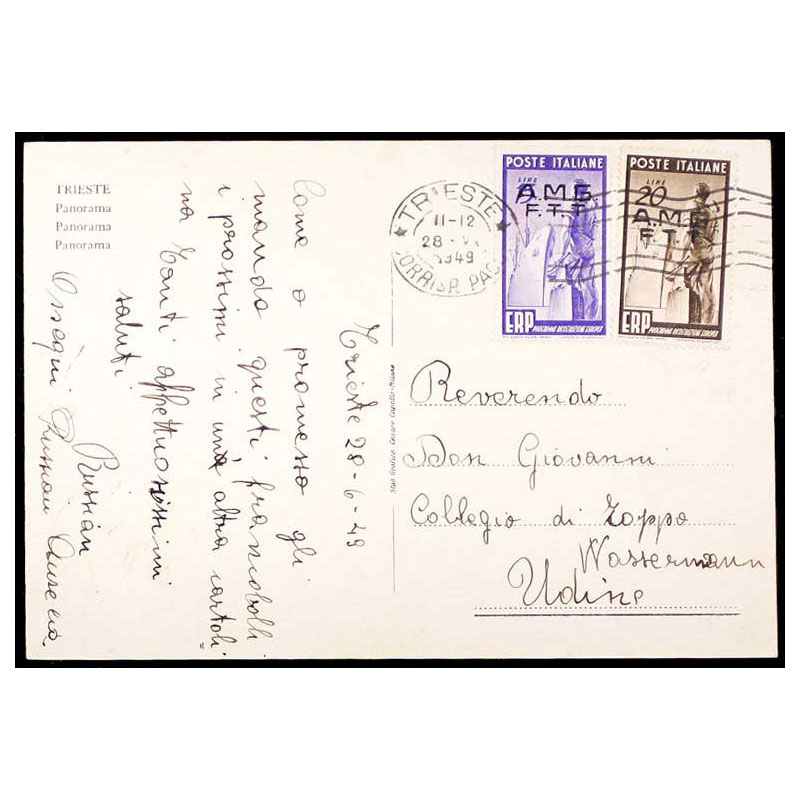 TRIESTE
Panorama
Panorama
Panorama.
Trieste 28-6-49
Come o promesso gli
mando questi francobolli
i prossimi in una altra cartoli=
na tanti affettuosissimi
saluti
Russian
Ossequi Russian
POSTE ITALIANE
LIRE
A.M.G.
F.T.T
ERP
PROGRAMMA RICOSTRUZIONE EUROPEA
POSTE ITALIANE
LIRE
20
A.M.G.
F.T.T
ERP
PROGRAMMA RICOSTRUZIONE EUROPEA
TRIESTE
11-12
28 · VI
1949
CORRISP. PAC
Stab. Grafico Cesare Capello-Milano
Reverendo
Don Giovanni
Collegio di Toppo
Wassermann
Udine